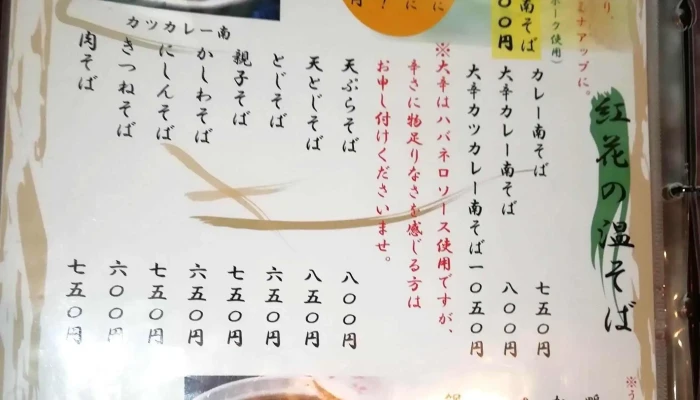 紅花の温そば
ミナアップに。
ポーク使用）
南そば
００円
カレー南そば 七五〇円
大辛カレー南そば 八〇〇円
大辛カツカレー南そば一〇五〇円
※大辛はハバネロソース使用ですが、
辛さに物足りなさを感じる方は
お申し付けくださいませ。
天ぷらそば 八〇〇円
天とじそば 八五〇円
とじそば 六五〇円
親子そば 七五〇円
かしわそば 六五〇円
にしんそば 七五〇円
きつねそば 六〇〇円
肉そば 七五〇円
カツカレー南